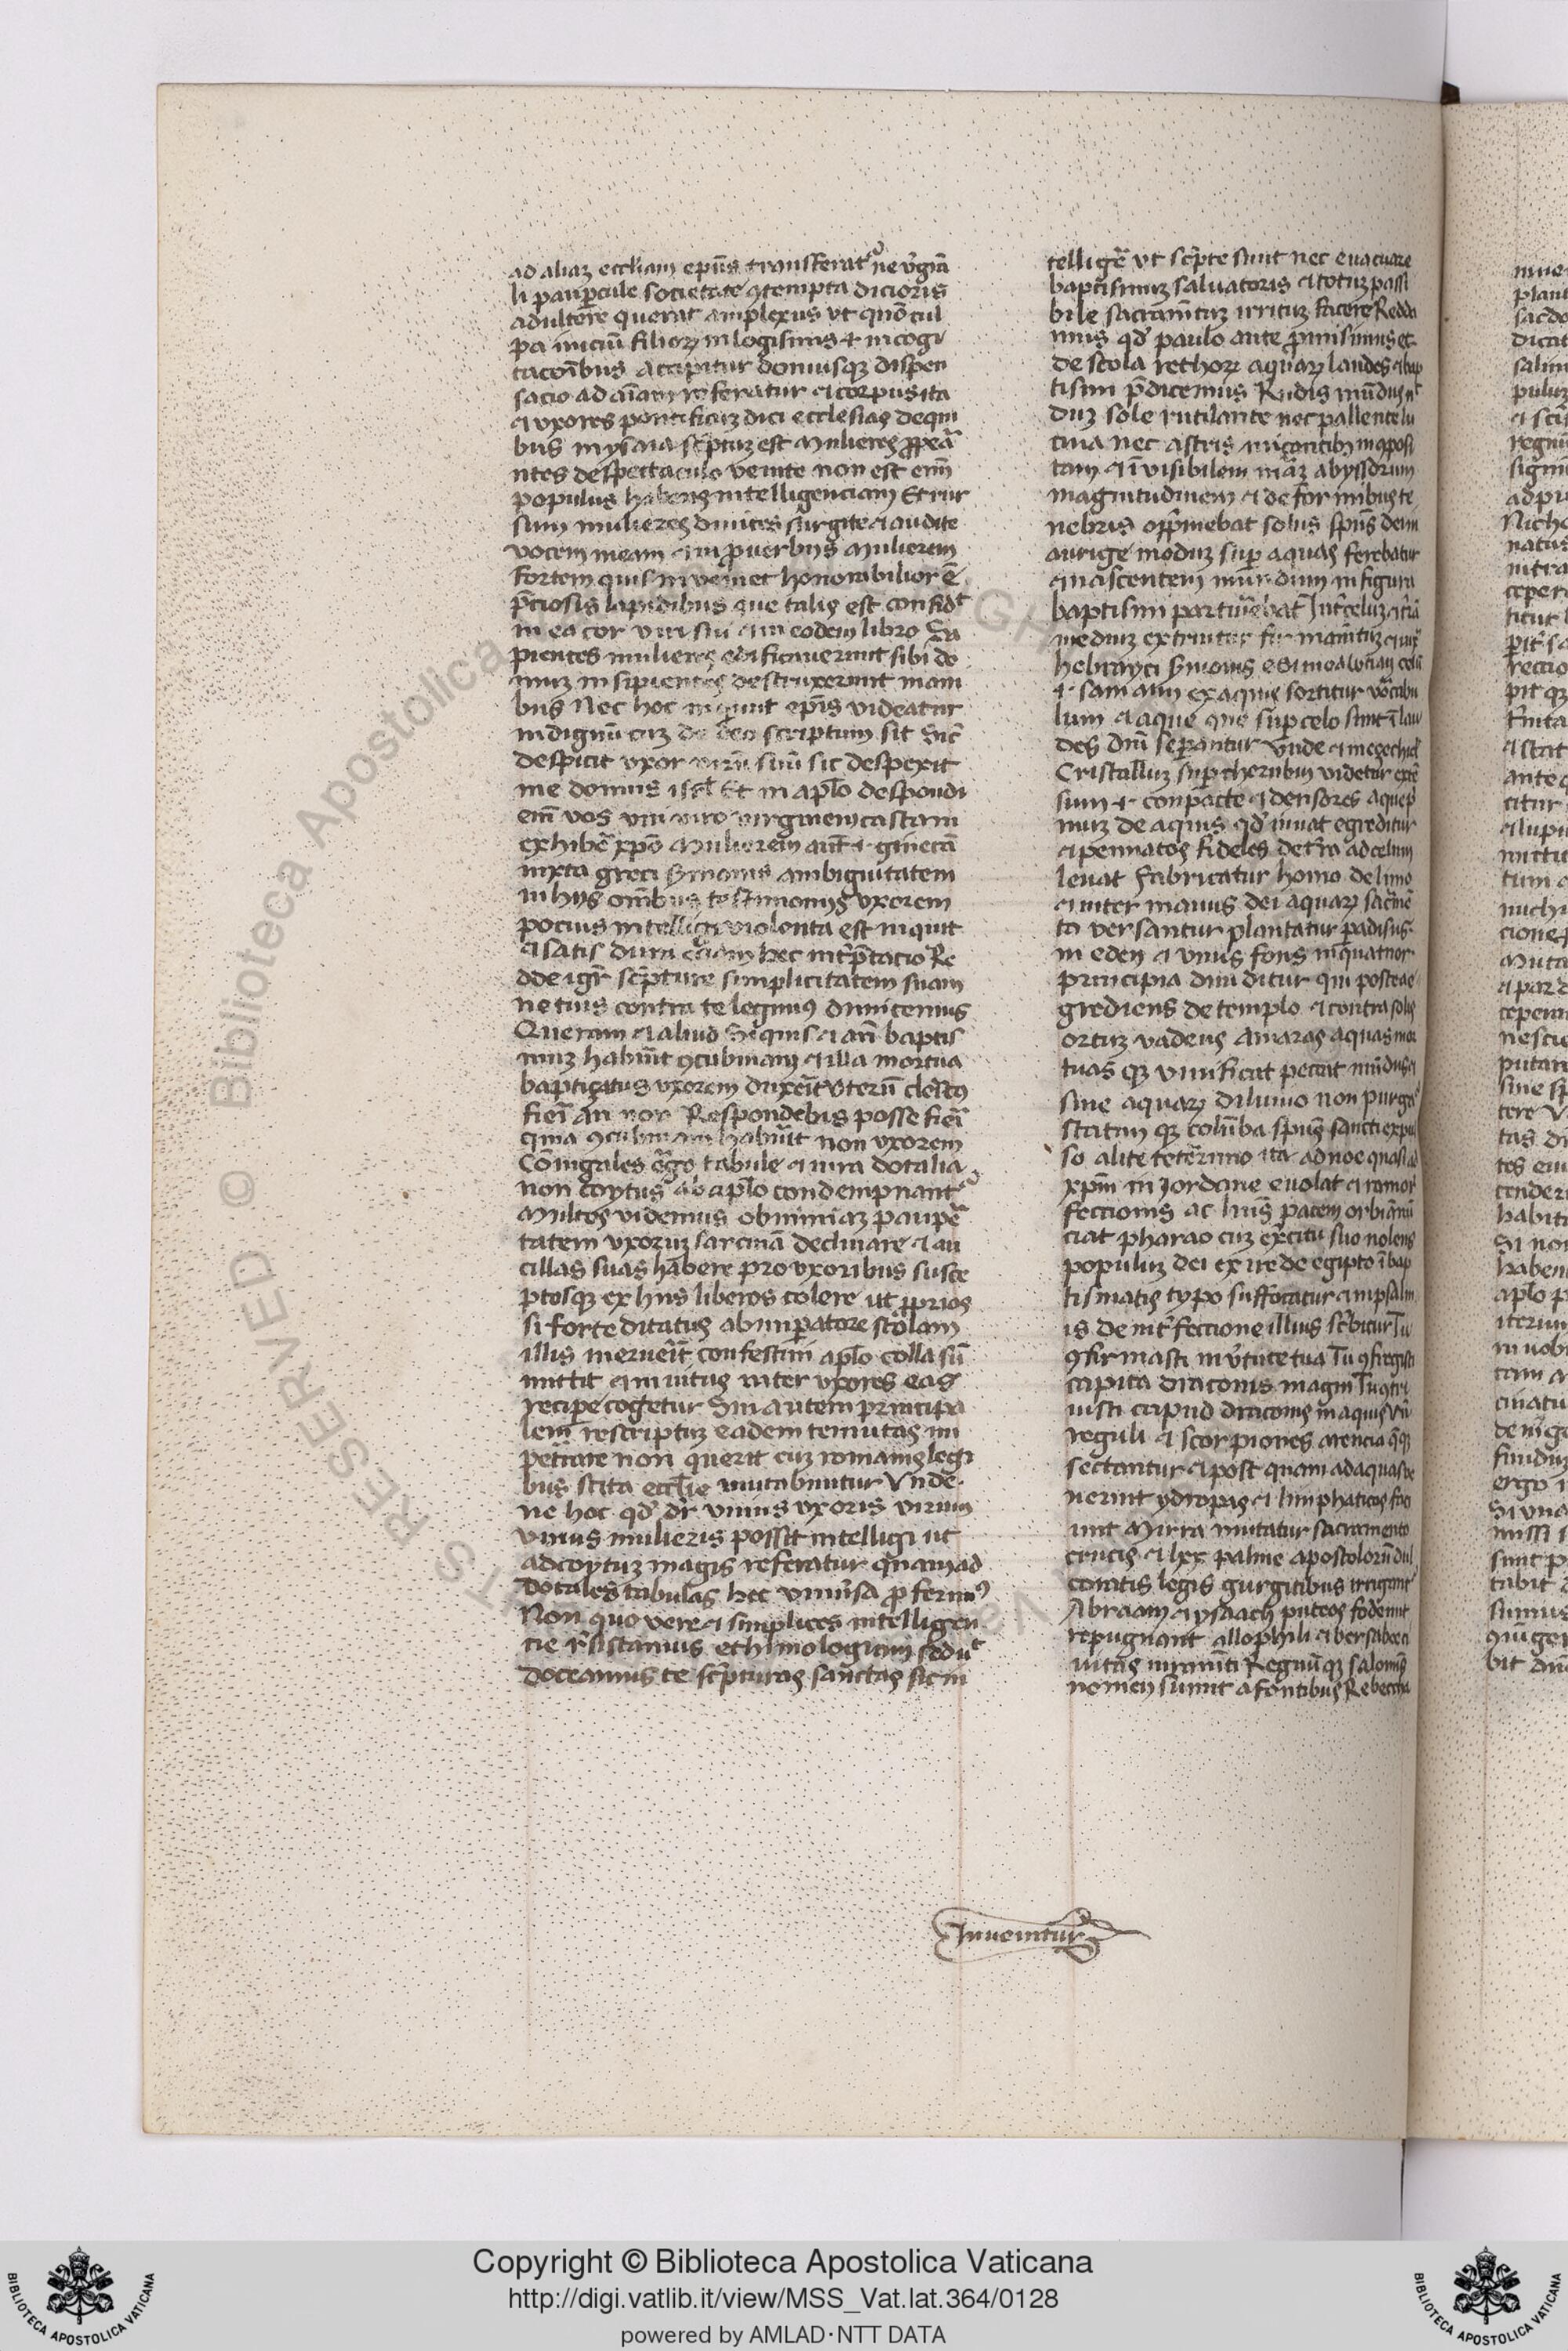 ad aliaz eccliam epūs transferat᷒ ne v̓gīa
li paup̄cule societate ꝯtempta dicioris
adult̓ere querat amplexus vt quō cul
pa iniciū filioꝝ in logismis ⁊ in cogi
tacōibus accipitur domusqꝫ dispen
sacio ad aīam referatur ⁊ corpus ita
⁊ vxores pontificuꝫ dici ecclesias de qui
bus in ysaia sc̓ptuꝫ est Mulieres ꝓꝑeā
ntes de spectaculo venite non est enī
populus habens intelligenciam Et rur
sum mulieres diuites surgite ⁊ audite
vocem meam ⁊ in ꝓuerbiis Mulierem
fortem quis inveniet honorabilior ē
p̄ciosis lapidibus que talis est confidᵗ
in ea cor viri sui ⁊ in eodem libro Sa
pientes mulieres edificauerunt sibi do
muꝫ insipientes destruxerunt mani
bus Nec hoc inquiunt epīs videatur
indignū cuꝫ de deo scriptum sit Sic̄
despicit vxor virū suū sic despexit
me domus isrl Et in aplo despondi
em̄ vos vni viro virginem castam
exhiberē xpō Mulierem aut̄ ⁊ ginecā
iuxta greci s̓monis ambiguitatem
in hiis om̄ibus testimoniis vxorem
pocius intelligi violenta est inquit
⁊ satis dura etiam hec int̓p̄tacio Re
dde igr̄ sc̓pture simplicitatem suam
ne tuis contra te legimꝰ dimicemus
Queram ⁊ aliud Si quis ⁊ an̄ baptis
muꝫ habuit̄ ꝯcubinam ⁊ illa mortua
baptiȝatus vxorem duxeīt vterū cleri̓cꝰ
fieri̓ an non Respondebis posse fieri̓
quia ꝯcubinam habuit̄ non vxorem
Cōiugales ergo tabule ⁊ iura dotalia
non coytus ab aplo condempnant᷒
Multos videmus ob nimiaꝫ paup̄e
tatem vxoruꝫ sarcinā declinare ⁊ an
cillas suas habere pro vxoribus susce
ptosqꝫ ex hiis liberos colere ut ꝓprios
si forte ditatus ab imp̄atore stolam
illis merueīt confestim aplo colla sū
mittit ⁊ inuitus inter vxores eas
recip̄e cogetur Sin autem principa
lem̄ rescriptuꝫ eadem tenuitas im
petrare non querit cuꝫ romanis legi
bus scita eccl̄ie mutabuntur Vide
ne hoc qd̓ dr̄ vnius vxoris virum
vnius mulieris possit intelligi ut
ad coytuꝫ magis referatur quam ad
dotales tabulas hec vniu̓sa ꝓferimꝰ
Non quo vere ⁊ simplices intelligen
cie r̄sistamus ethimologiam sed ut
doceamus te sc̓pturas sanctas sic in
telligē̓ vt sc̓pte sunt nec euacuare
baptismuꝫ saluatoris ⁊ totuꝫ passi
bile sacramn̄tuꝫ irrituꝫ facere Redda
mus qd̓ paulo ante ꝓmisimus et
de scola rethoꝝ aquaꝝ laudes ⁊ bap
tismi p̄dicemus Rudis mūdus nᶜ
duꝫ sole rutilante nec pallente lu
na nec astris micantibꝫ inꝯposi
tam ⁊ īvisibilem mat̓iaꝫ abyssorum
magnitudinem ⁊ deformibus te
nebris opp̓mebat solus spūs dei in
aurige moduꝫ sup̄ aquas ferebatur
⁊ nascentem mundum in figura
baptismi partur̓iebat Int̓ celuꝫ ⁊ t̓ra
mediuꝫ extruitur firmamn̄tuꝫ ⁊ iux̄
hebrayci s̓monis
⁊ samaim ex aquis sortitur vocabu
lum ⁊ aque que sup̄ celo sunt ī lau
des dn̄i sep̄antur Vnde ⁊ in eȝechiel
Cristalluꝫ sup̄ cherubin videtur extē
sum ⁊ conpacte ⁊ densores aque p̓
muꝫ de aquis qd̓ viuat egreditur
⁊ pennatos fideles de t̓ra ad celum
leuat Fabricatur homo de limo
⁊ inter manus dei aquaꝝ sacrame̓
ta versantur plantatur padisus
in eden ⁊ vnus fons in quatuor
principia diuiditur qui postea e
grediens de templo ⁊ contra solis
ortuꝫ vadens Amaras aquas mor
tuasqꝫ viuificat peccat mūdus ⁊
sine aquaꝝ diluuio non purgatᷣ
statimqꝫ colūba spūs sancti expul
so alite teterrimo ita ad noe quasi ad
xpm̄ in Jordane euolat ⁊ ramo r̄
feccionis ac luīs pacem orbi ānū
ciat pharao cuꝫ exc̓itu suo nolens
populuꝫ dei exire de egipto ī bap
tismatis typo suffocatur ⁊ in psalm
is de int̓feccione illius sc̓bitur Tu
ꝯfirmasti in v̓tute tua Tu ꝯfregisti
capita draconis magni Tu ꝯtri
uisti capud draconis in aquis Vn̄
reguli ⁊ scorpiones arencia q̄qꝫ
sectantur ⁊ post quam ad aquas ve
nerint ydropas ⁊ limphaticos faci
unt Mirra mutatur sacramento
crucis ⁊ lxx palme apostoloꝝ dul
coratis legis gurgitibus irrigantᷣ
Abraam ⁊ ysaach puteos foderunt
repugnant allophili ⁊ bersabee ci
uitas iuramn̄ti Regnūqꝫ salomōis
nomen sumit a fontibus Rebecca
Inuenitur
Copyright © Biblioteca Apostolica Vaticana
http://digi.vatlib.it/view/MSS_Vat.lat.364/0128
powered by AMLAD·NTT DATA
BIBLIOTECA APOSTOLICA VATICANA
BIBLIOTECA APOSTOLICA VATICANA